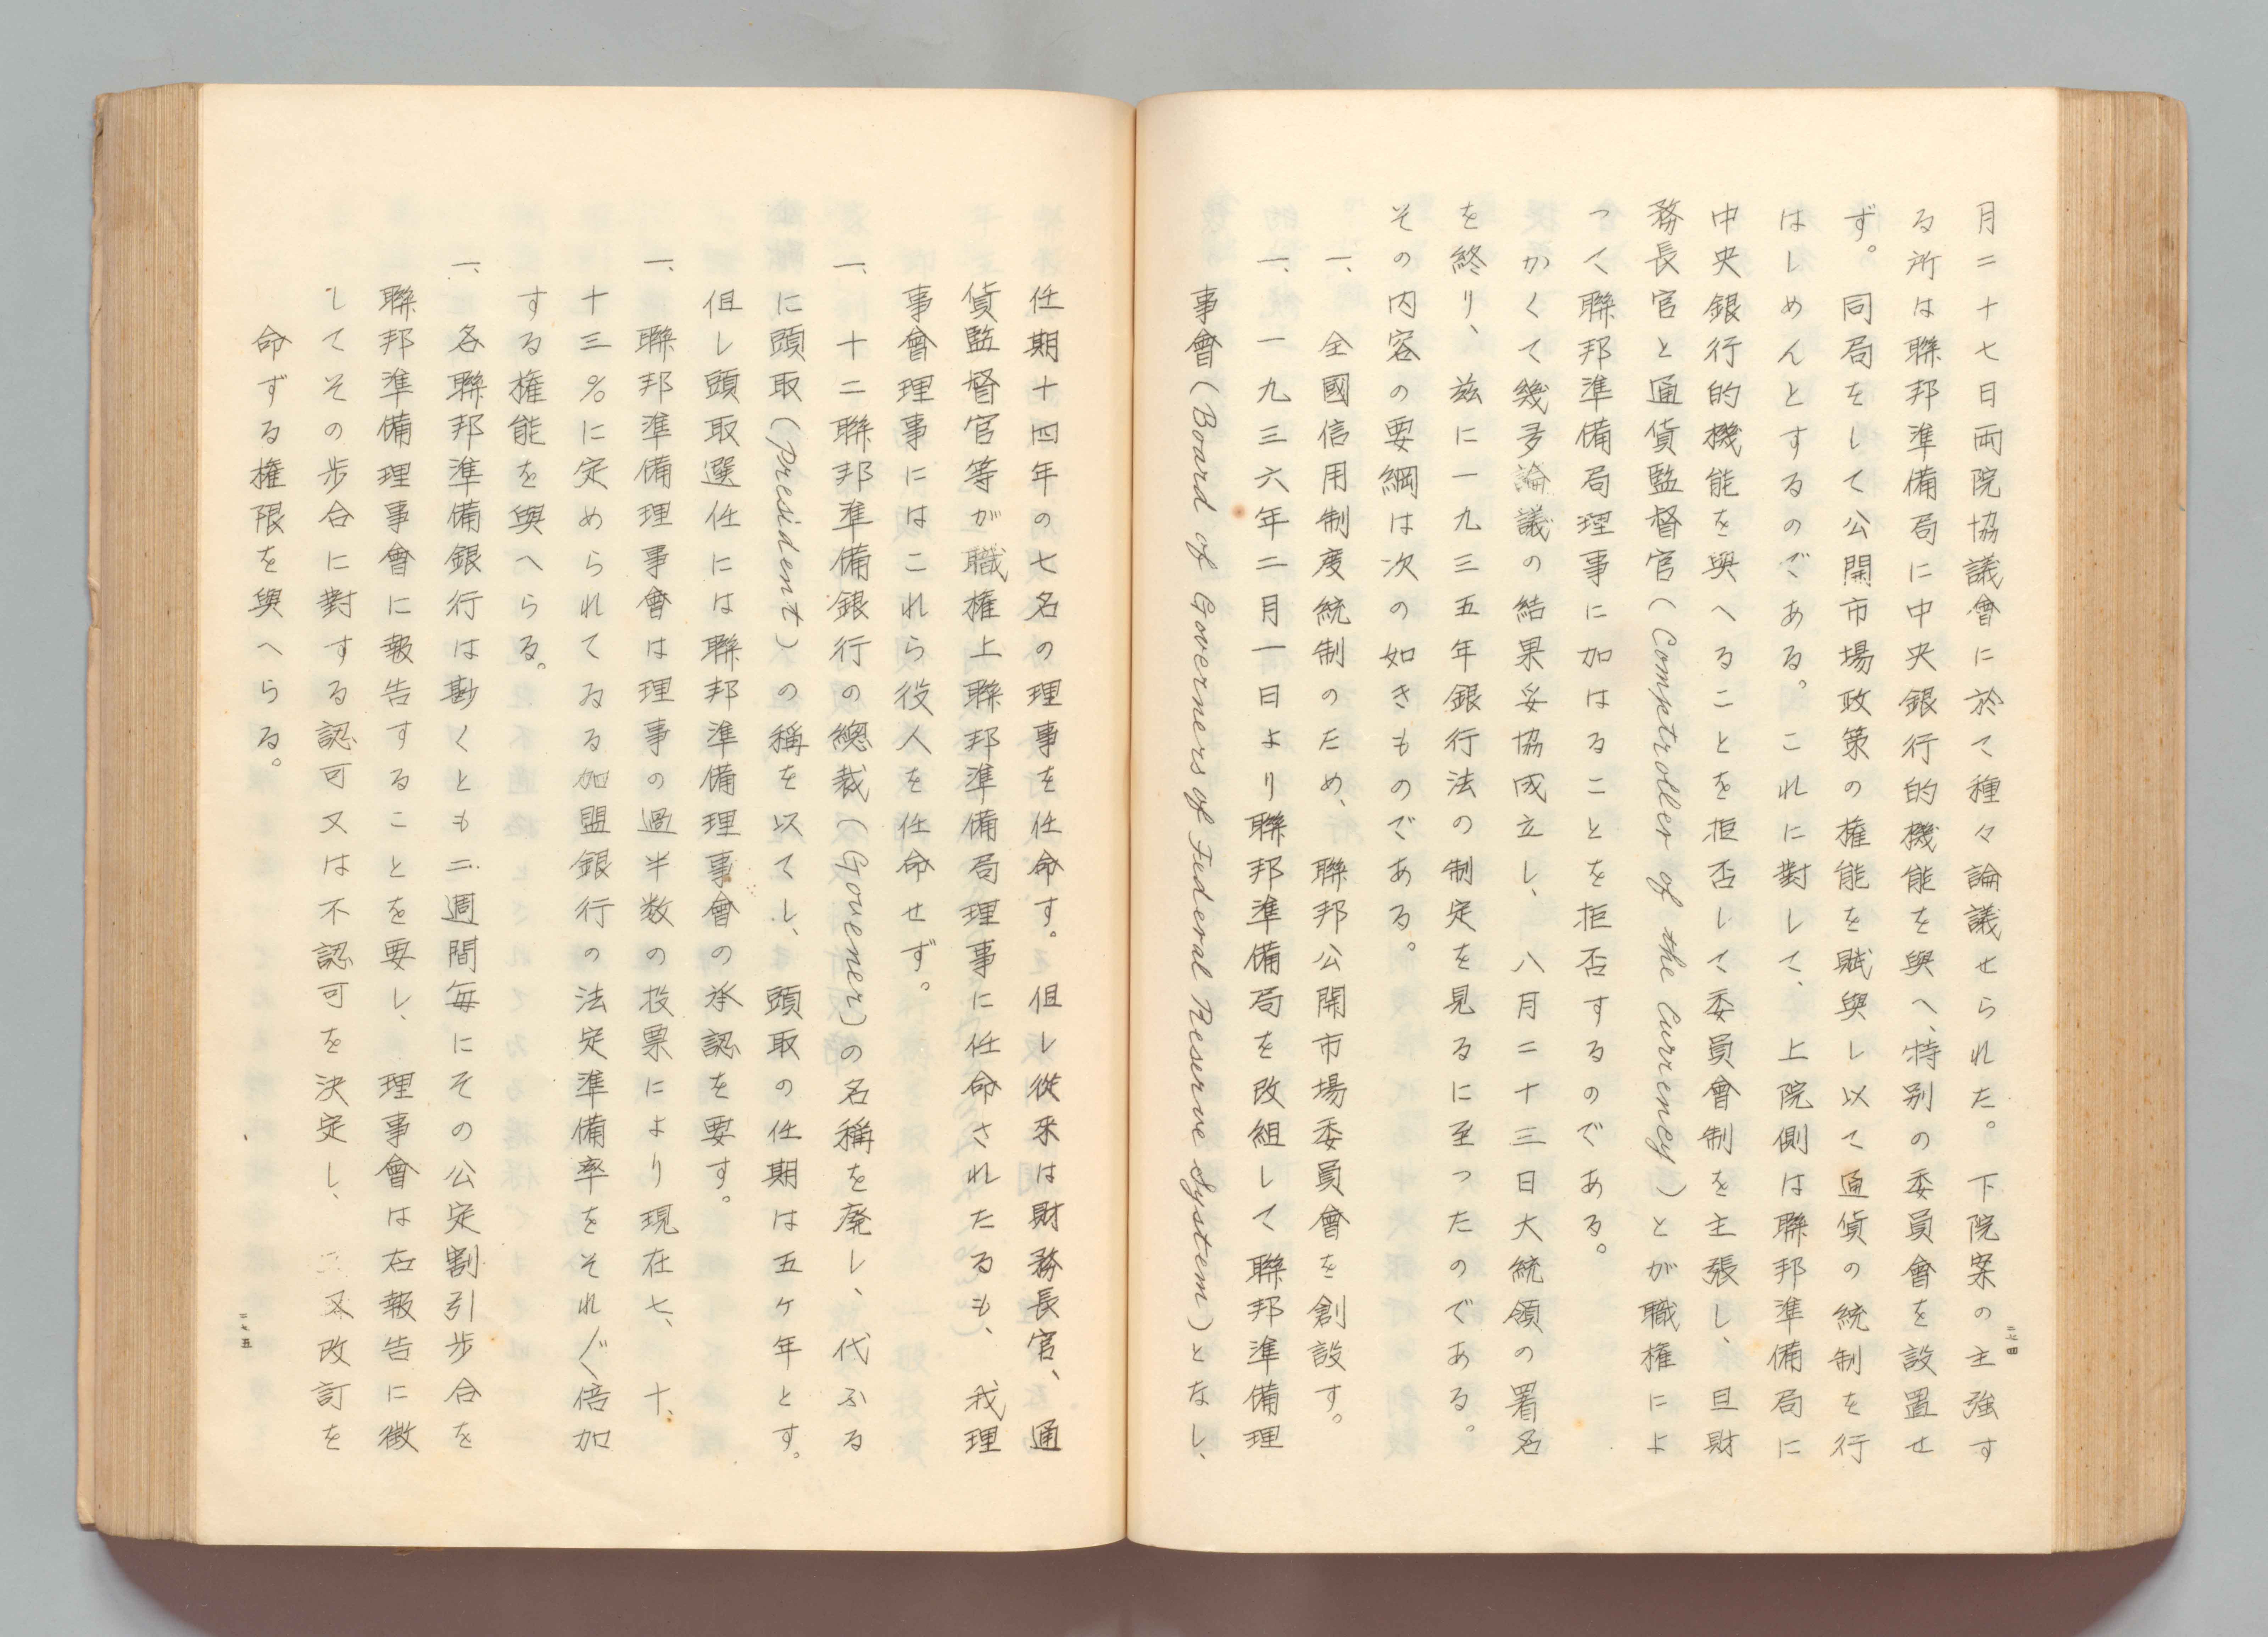 月二十七日両院協議會に於て種々論議せられた。下院案の主強す
る所は聯邦準備局に中央銀行的機能を與へ、特別の委員會を設置せ
ず。同局をして公開市場政策の権能を賦與し以て通貨の統制を行
はしめんとするのである。これに對して、上院側は聯邦準備局に
中央銀行的機能を與へることを拒否して委員會制を主張し、且財
務長官と通貨監督官(Comptroller of the Currency)とが職権によ
つて聯邦準備局理事に加はることを拒否するのである。
かくて幾多論議の結果妥協成立し、八月二十三日大統領の署名
を終り、茲に一九三五年銀行法の制定を見るに至つたのである。
その内容の要綱は次の如きものである。
一、全國信用制度統制のため、聯邦公開市場委員會を創設す。
一、一九三六年二月一日より聯邦準備局を改組して聯邦準備理
事會(Board of Governers of Federal Reserve System)となし、
二七四
任期十四年の七名の理事を任命す。但し従来は財務長官、通
貨監督官等が職権上聯邦準備局理事に任命されたるも、我理
事會理事にはこれら役人を任命せず。
一、十二聯邦準備銀行の總裁(Govener)の名稱を廃し、代ふる
に頭取(president)の稱を以てし、頭取の任期は五ケ年とす。
但し頭取選任には聯邦準備理事會の承認を要す。
一、聯邦準備理事會は理事の過半数の投票により現在七、十、
十三%に定められてゐる加盟銀行の法定準備率をそれ〴〵倍加
する権能を與へらる。
一、各聯邦準備銀行は尠くとも二週間毎にその公定割引歩合を
聯邦準備理事會に報告することを要し、理事會は右報告に徴
してその歩合に對する認可又は不認可を決定し、又改訂を
命ずる権限を與へらる。
二七五